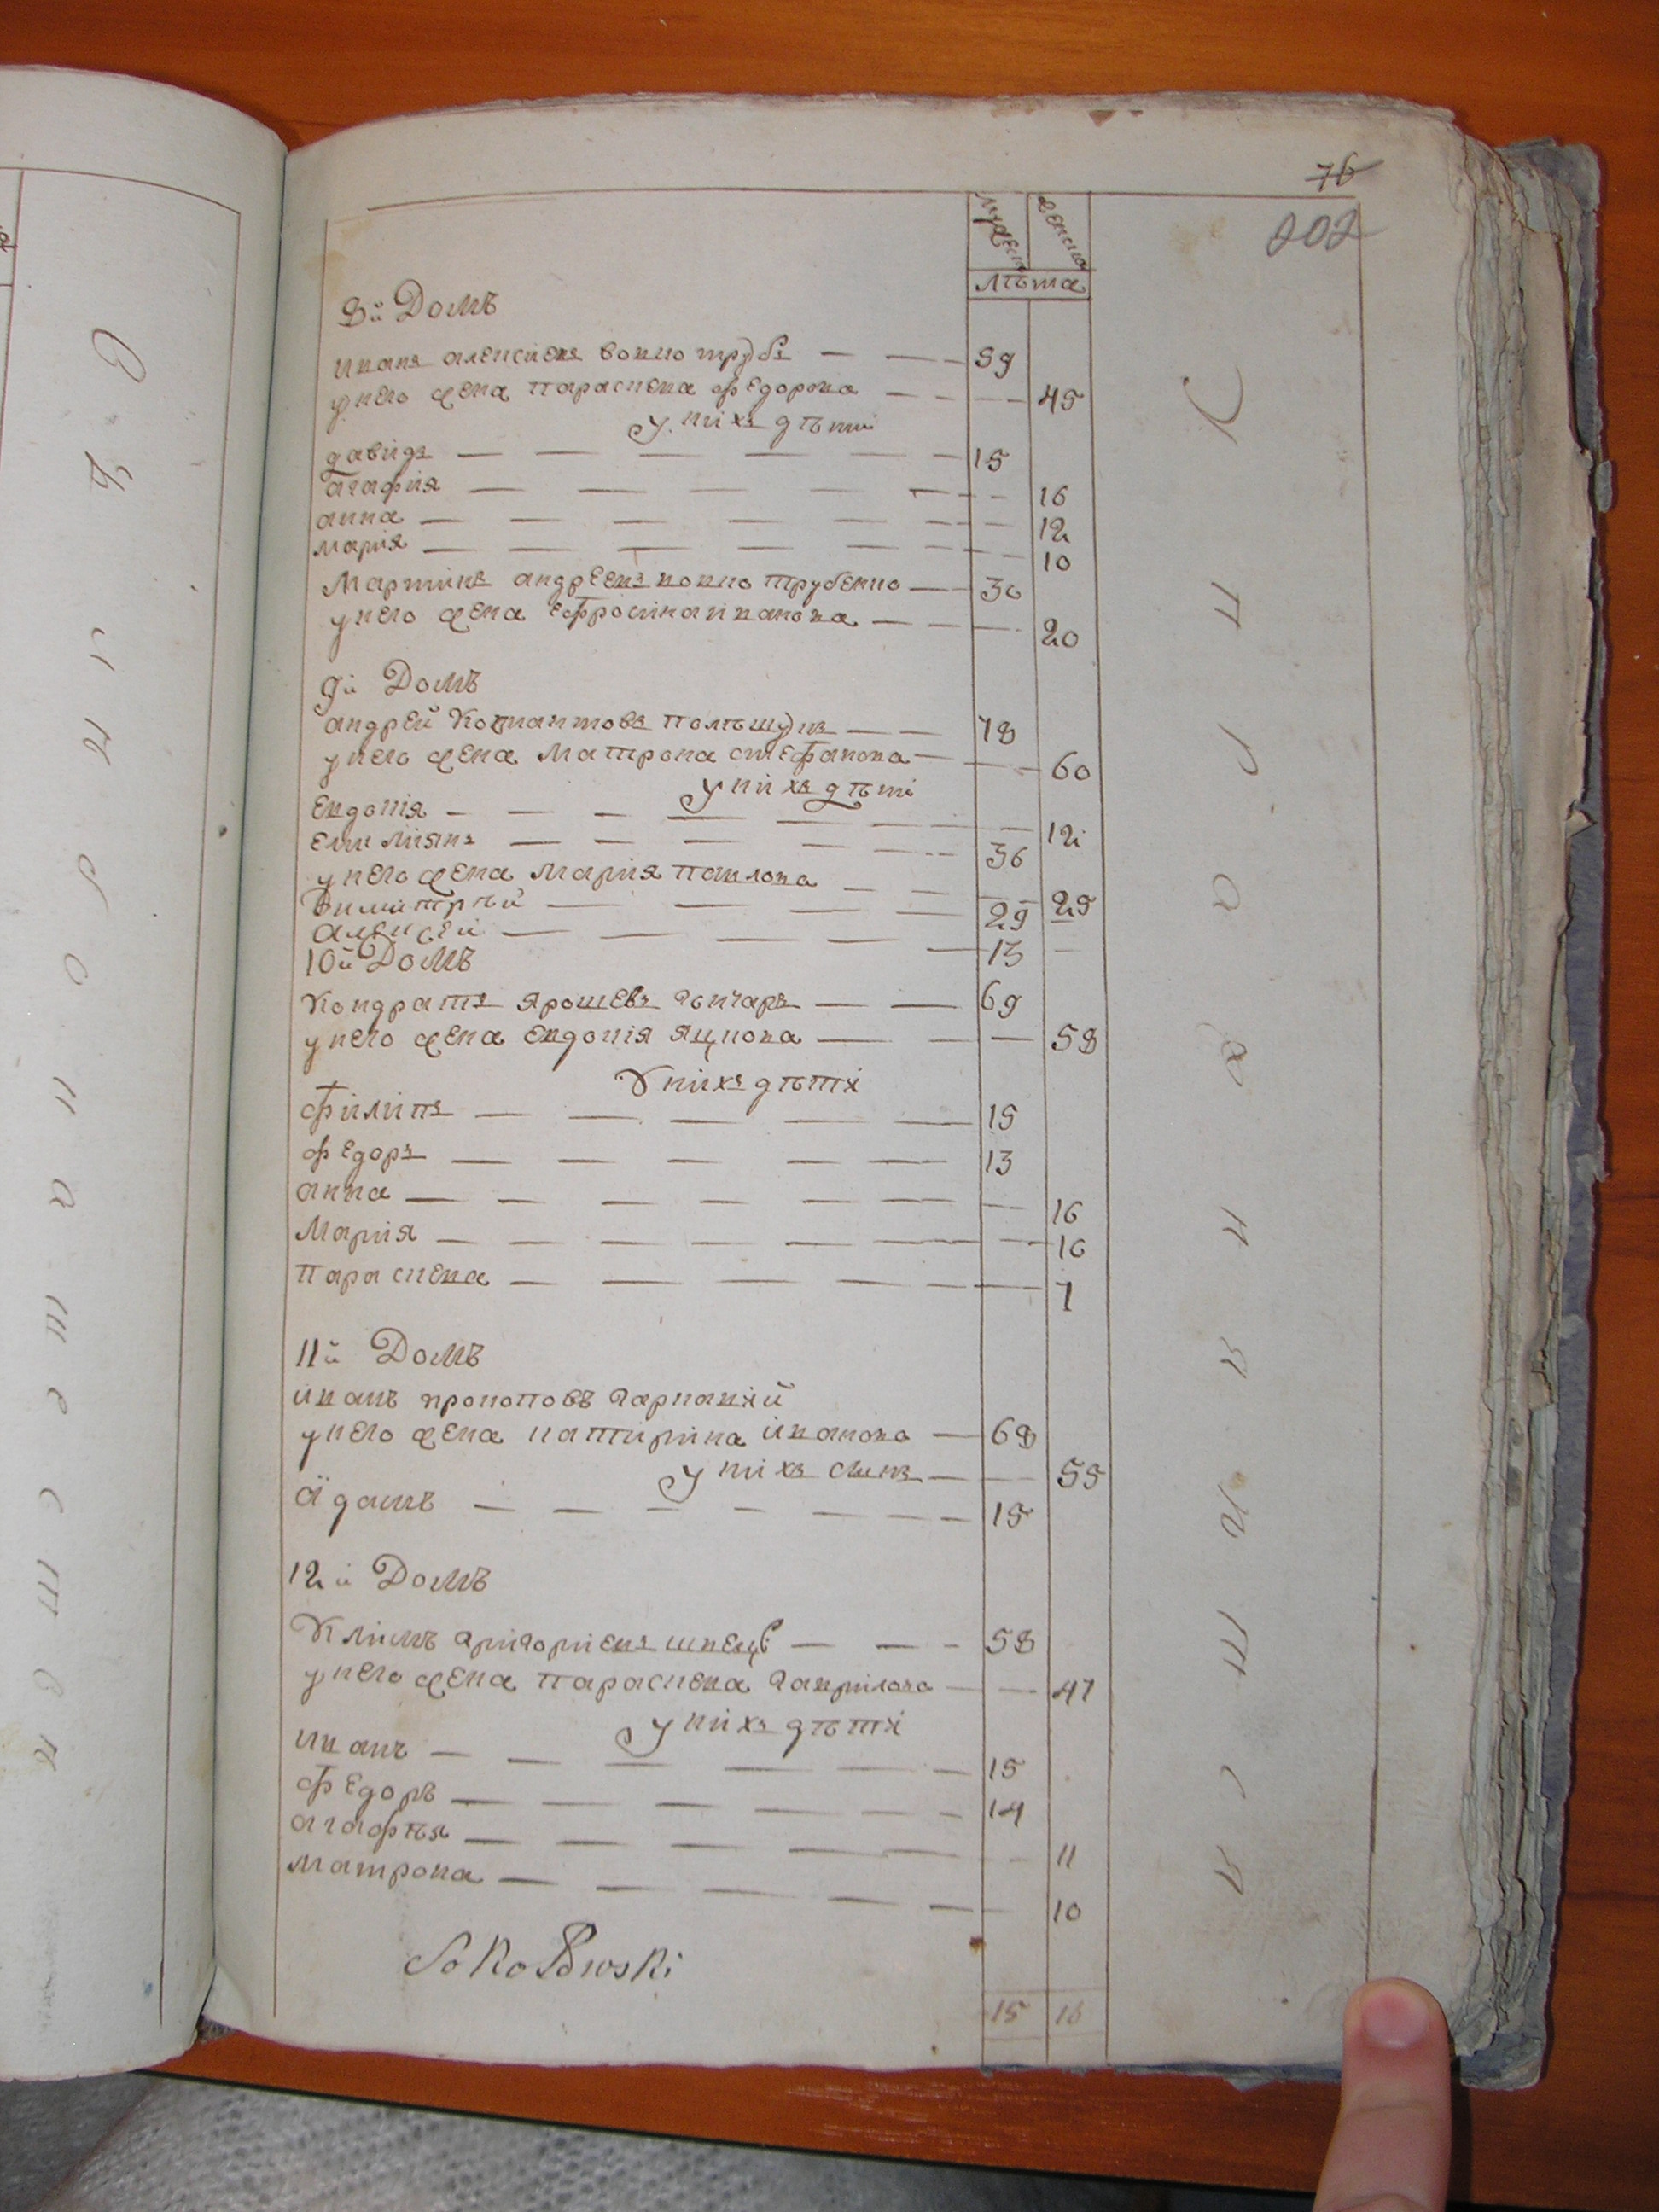 76
202
мужеска женска
лѣта
8й Домъ
иванъ алексѣевъ вовкотрубъ 59
унего жена параскева федорова 45
унихъ дѣти
давидъ 15
агафия 16
анна 12
мария 10
Мартинъ андреевъ вовкотрубенко 30
унего жена ефросина иванова 20
9й Домъ
андрей Константовъ полѣщукъ 78
унего жена матрона стефанова 60
унихъ дѣти
евдокия 12
емилиянъ 36
унего жена мария павлова 25
димитрий 29
алексей 13
10й Домъ
Кондратъ ярошевъ гончаръ 69
унего жена евдокия яцкова 58
Унихъ дѣти
филипъ 15
федоръ 13
анна 16
Мария 16
параскева 7
11й Домъ
иванъ прокоповъ
унего жена катирина иванова 68
унихъ синъ 55
адамъ 15
12й Домъ
Климъ григориевъ швецъ 58
унего жена параскева гаврилова 47
унихъ дѣти
иванъ 15
федоръ 14
агафѣя 11
матрона 10
Sokołowski
15 16